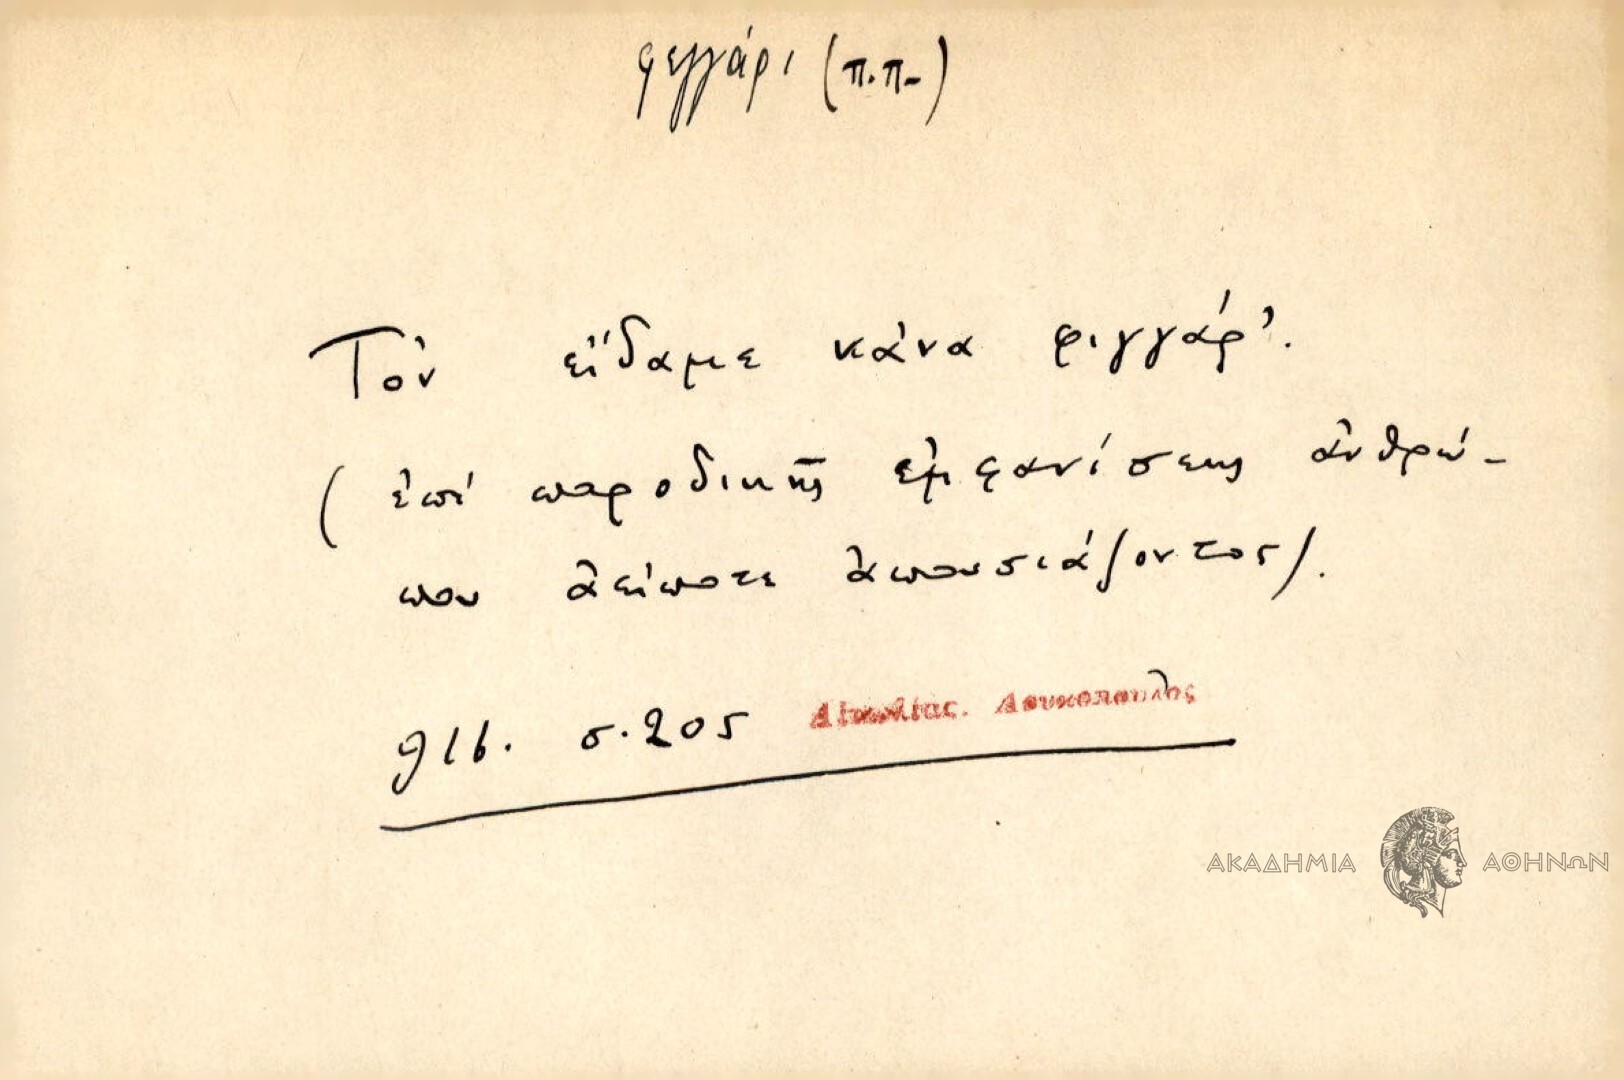 φεγγάρι (π.π.)
Τὸν εἴδαμε κάνα φιγγάρ'.
(ἐπί παροδικῆς ἐμφανίσεως ἀνθρώ-
που ἀείποτε ἀπουσιάζοντος).
916. σ. 205 Αἰτωλίας. Λουκόπουλος
ΑΚΑΔΗΜΙΑ ΑΘΗΝΩΝ